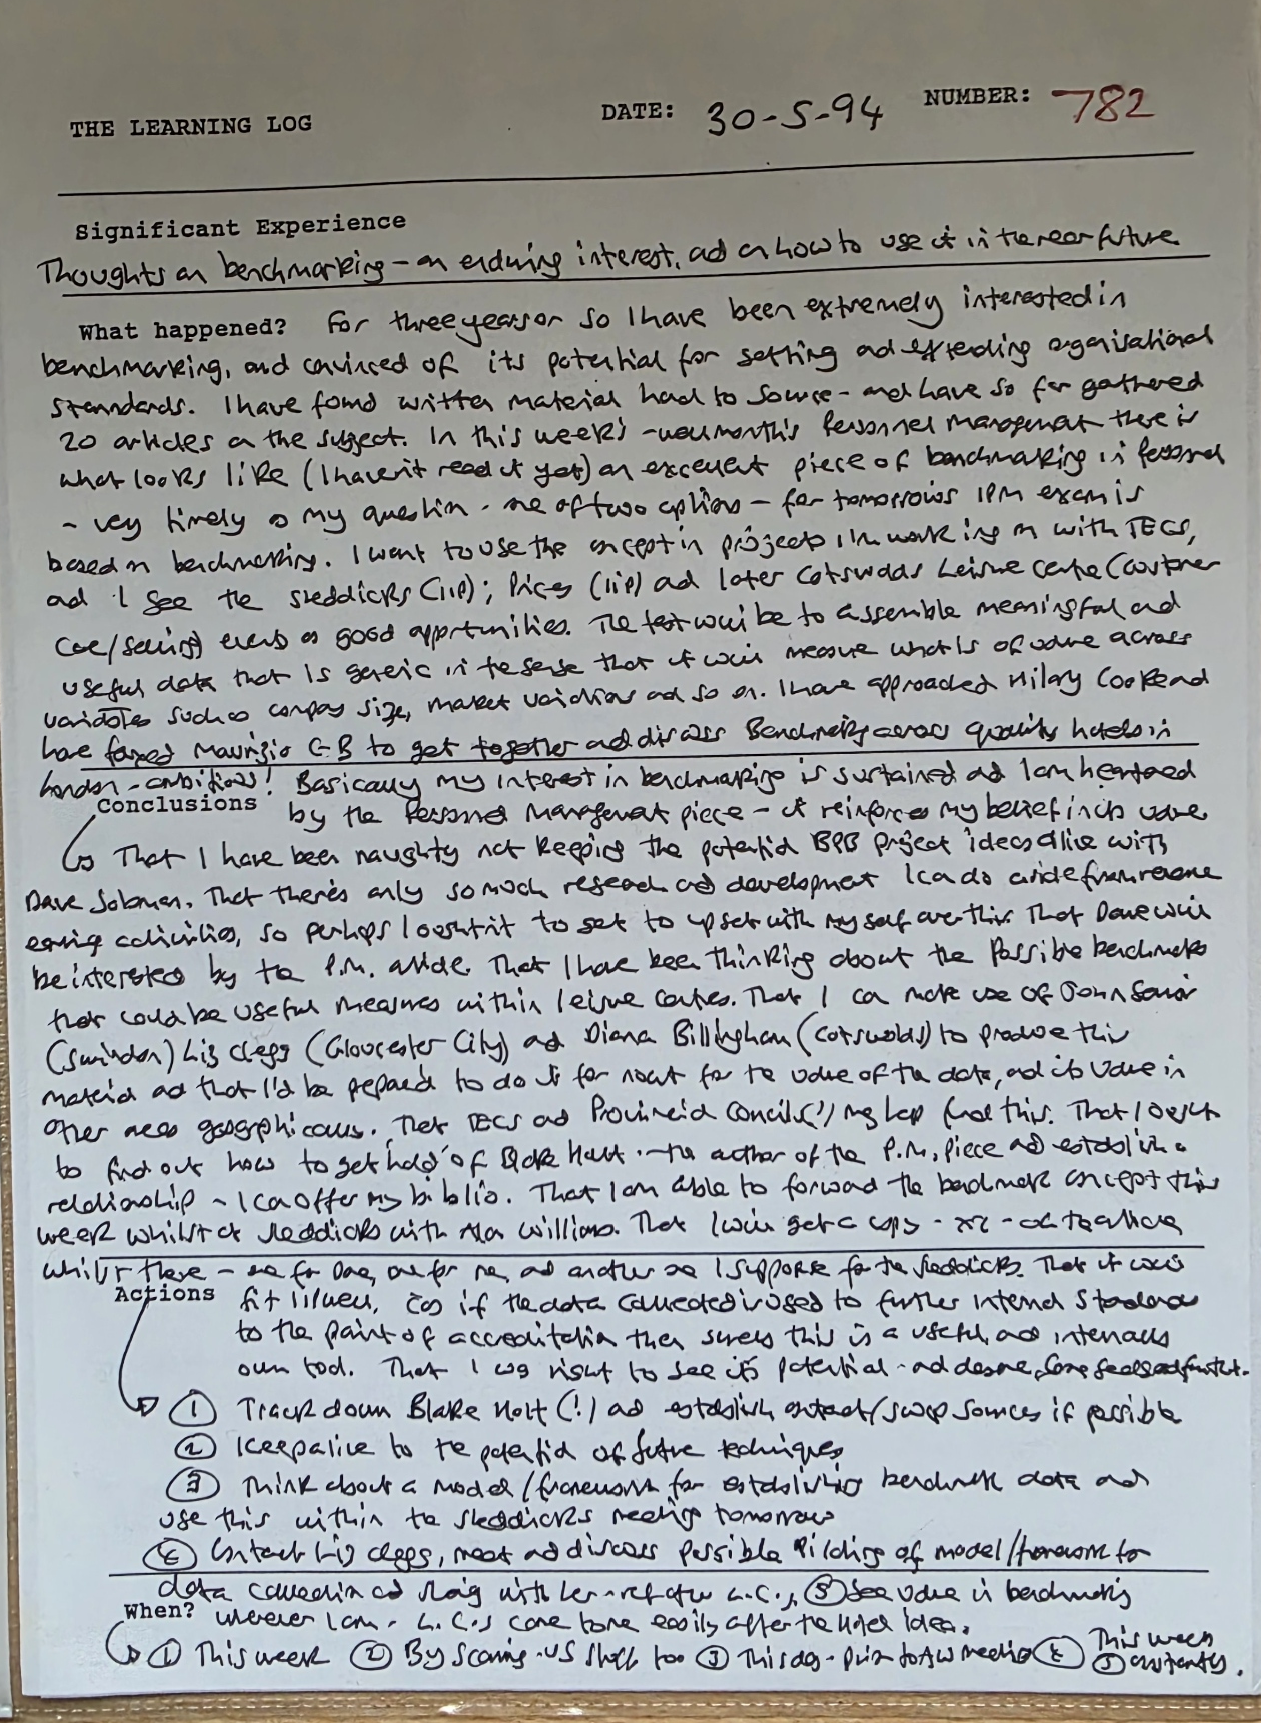 THE LEARNING LOG
DATE: 30-5-94
NUMBER: 782
Significant Experience
Thoughts on benchmarking - an enduring interest, and on how to use it in the near future
What happened? For three years or so I have been extremely interested in
benchmarking, and convinced of its potential for setting and extending organisational
standards. I have found written material hard to source - and have so far gathered
20 articles on the subject. In this week's - well month's Personnel Management there is
what looks like (I haven't read it yet) an excellent piece of benchmarking in personnel
- very timely as my question - one of two options - for tomorrows IPM exam is
based on benchmarking. I want to use the concept in projects I'm working on with TECS,
and I see the Skeddicks (IIP); Prices (IIP) and later Cotswolds Leisure Centre (Customer
Care/selling) events as good opportunities. The test will be to assemble meaningful and
useful data that is generic in the sense that it will measure what is of value across
variables such as company size, market variations and so on. I have approached Hilary Cooke and
have faxed Maurizio C-B to get together and discuss Benchmarking across quality hotels in
London - ambitious! Basically my interest in benchmarking is sustained and I am heartened
Conclusions by the Personnel Management piece - it reinforces my belief in its value
That I have been naughty not keeping the potential BPB project ideas alive with
Dave Solomon. That there's only so much research and development I can do aside from revenue
earning activities, so perhaps I oughtn't to get to upset with myself over this. That Dave will
be interested by the P.M. article. That I have been thinking about the possible benchmarks
that could be useful measures within leisure centres. That I can make use of John Senior
(Swindon) Liz Clegg (Gloucester City) and Diana Billingham (Cotswolds) to produce this
material and that I'd be prepared to do it for nowt for the value of the data, and its value in
other areas geographically. That TECS and Provincial Councils (!) may help fund this. That I ought
to find out how to get hold of Blake Holt - the author of the P.M. piece and establish a
relationship - I can offer my biblio. That I am able to forward the benchmark concept this
week whilst at Skeddicks with Alan Williams. That I will get a copy - xx - of the article
whilst there - one for Dave, one for me, and another one I suppose for the Skeddicks. That it will
Actions fit IIP well, cos if the data collected is used to further internal standards
to the point of accreditation then surely this is a useful, and internally
own tool. That I was right to see its potential - and desire, some seeds and fruit.
① Track down Blake Holt (!) and establish contact/swap sources if possible
② Keep alive to the potential of future techniques
③ Think about a model/framework for establishing benchmark data and
use this within the Skeddicks meeting tomorrow
④ Contact Liz Clegg, meet and discuss possible piloting of model/framework for
data collection and sharing with her - ref other L.C.s, ⑤ See value in benchmarking
When? wherever I am - L.C.s came to me easily after the hotel idea.
① This week ② By scanning - US stuff too ③ This day - prior to AW meeting ④ This week
⑤ constantly.